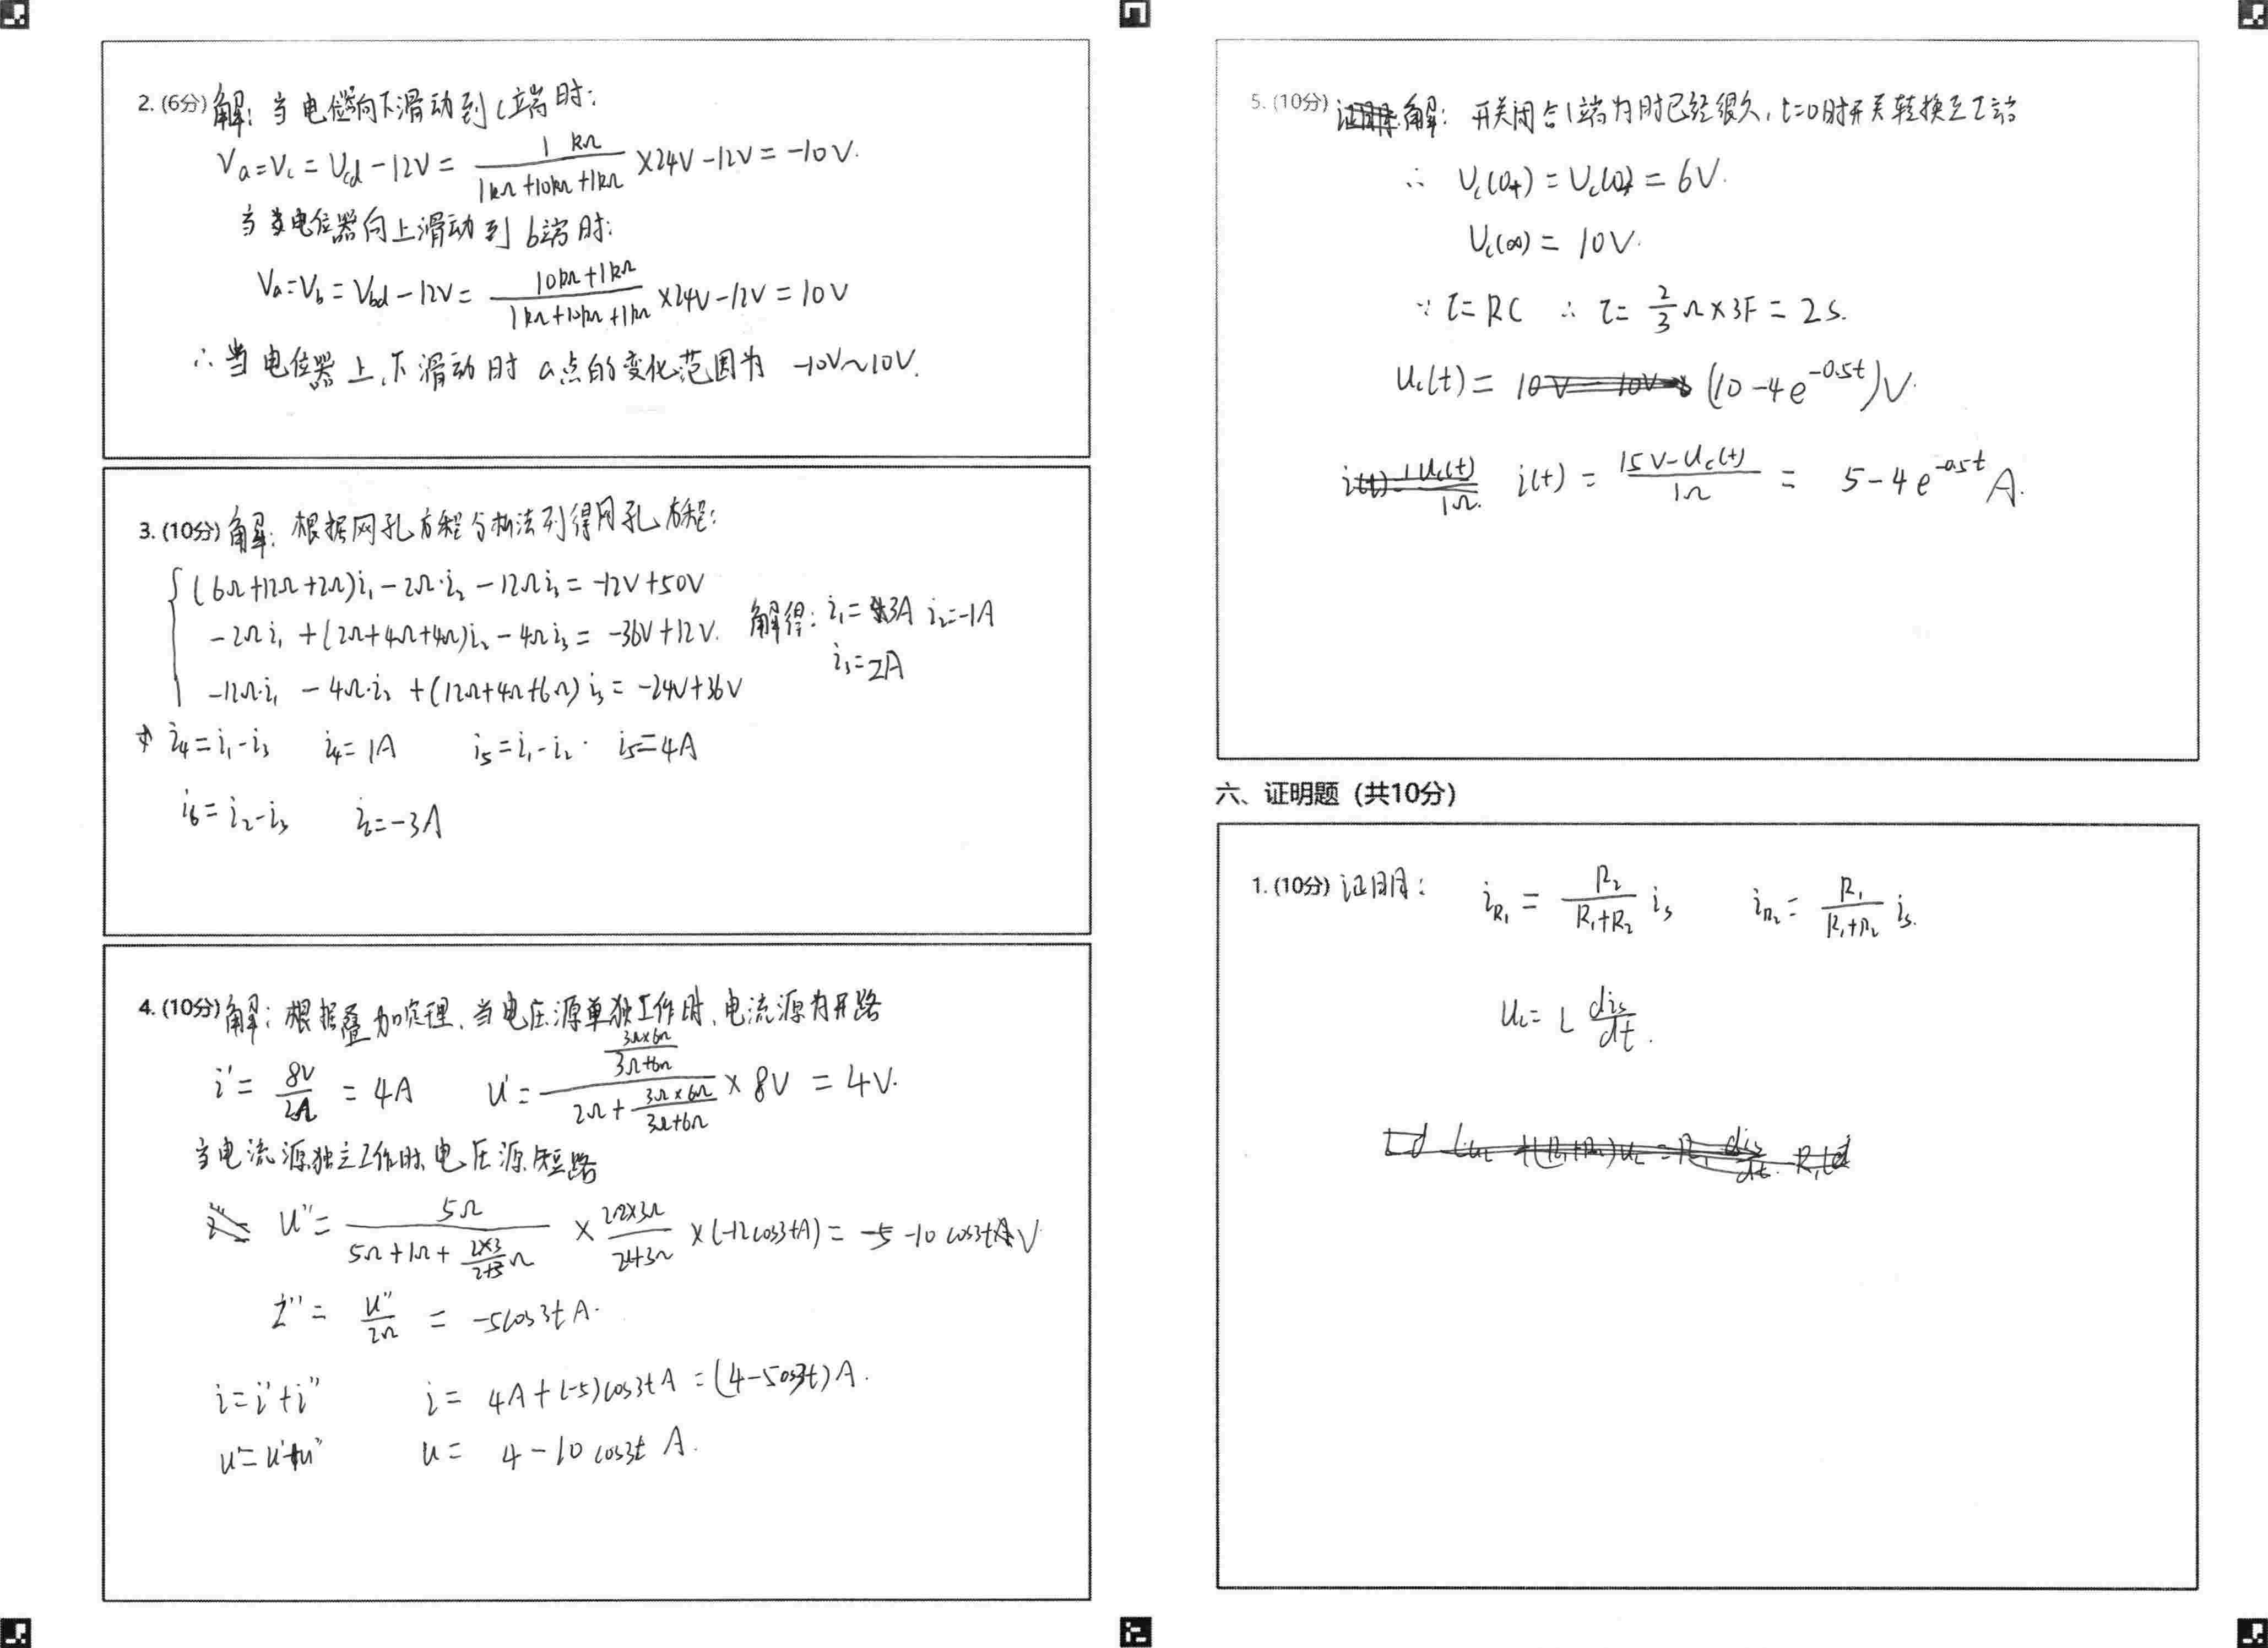 2. (6分) 解: 当电位器向下滑动到c端时:
Va=Vc = Ucd −12V = 1kΩ/(1kΩ+10kΩ+1kΩ) ×24V −12V = −10V.
当电位器向上滑动到b端时:
Va=Vb = Vbd −12V = (10kΩ+1kΩ)/(1kΩ+10kΩ+1kΩ) ×24V −12V = 10V
∴当电位器上、下滑动时 a点的变化范围为 −10V~10V.
3. (10分) 解: 根据网孔方程分析法列得网孔方程:
(6Ω+12Ω+2Ω)i₁ − 2Ω·i₂ − 12Ωi₃ = −12V+50V
−2Ωi₁ + (2Ω+4Ω+4Ω)i₂ − 4Ωi₃ = −36V+12V.
−12Ω·i₁ − 4Ω·i₂ + (12Ω+4Ω+6Ω)i₃ = −24V+36V
解得: i₁=3A i₂=−1A
i₃=2A
i₄=i₁−i₃ i₄=1A i₅=i₁−i₂. i₅=4A
i₆=i₂−i₃ i₆=−3A
4. (10分) 解: 根据叠加定理, 当电压源单独工作时, 电流源为开路
i' = 8V/2Ω = 4A u' = (3Ω×6Ω/(3Ω+6Ω))/(2Ω + 3Ω×6Ω/(3Ω+6Ω)) × 8V = 4V.
当电流源独立工作时, 电压源短路
u'' = 5Ω/(5Ω+1Ω+(2×3)/(2+3)Ω) × 2Ω×3Ω/(2+3Ω) × (−12cos3tA) = −10cos3t V
i'' = u''/2Ω = −5cos3t A.
i=i'+i'' i = 4A+(−5)cos3tA = (4−5cos3t)A.
u=u'+u'' u = 4−10cos3t A.
5. (10分) 解: 开关闭合1端为时已经很久, t=0时开关转换至2端
∴ Uc(0+) = Uc(0-) = 6V.
Uc(∞) = 10V.
∵ τ=RC ∴ τ= 2/3 Ω×3F = 2S.
Uc(t) = (10−4e^−0.5t)V.
i(t) = (15V−Uc(t))/1Ω = 5−4e^−0.5t A.
六、证明题（共10分）
1. (10分) 证明: iR₁ = R₂/(R₁+R₂) is iR₂ = R₁/(R₁+R₂) is.
UL = L dis/dt.